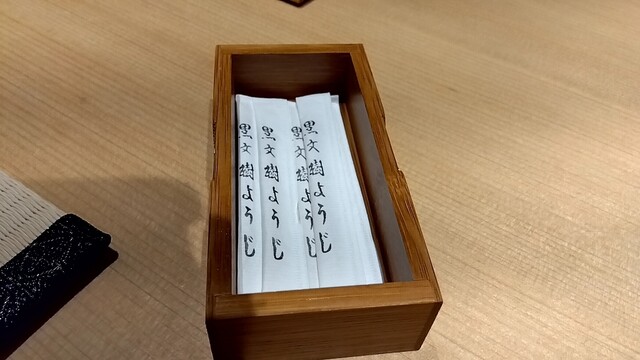 黒文樹ようじ
黒文樹ようじ
黒文樹ようじ
黒文樹ようじ